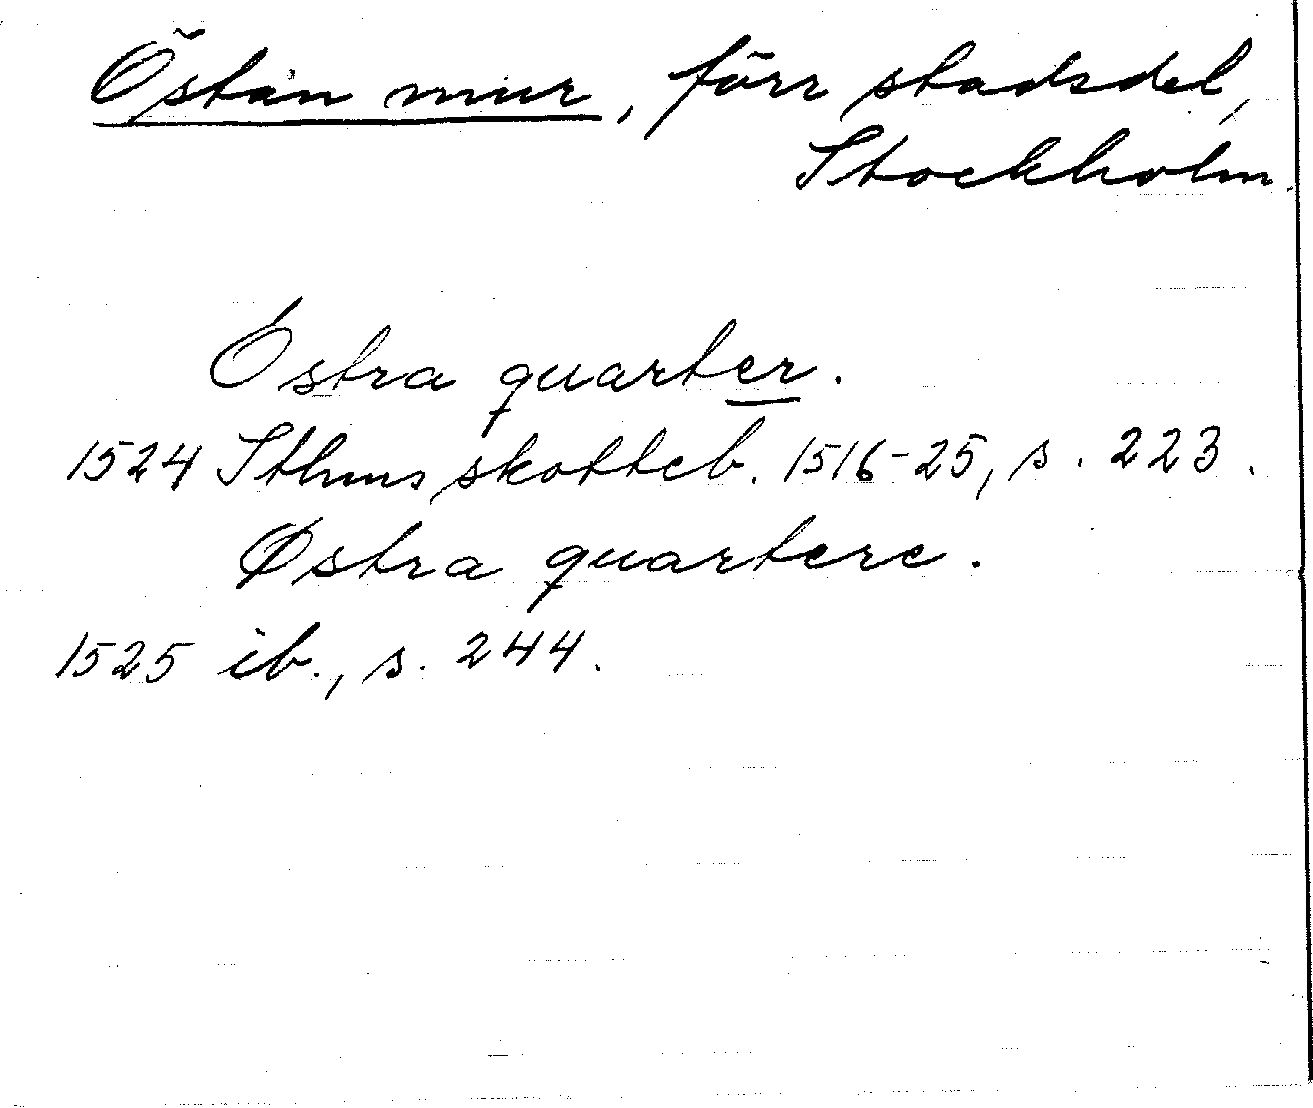 Östan mur, förr stadsdel,
Stockholm.
Óstra quarter.
1524 Sthms skotteb. 1516-25, s. 223.
Østra quartere.
1525 ib., s. 244.